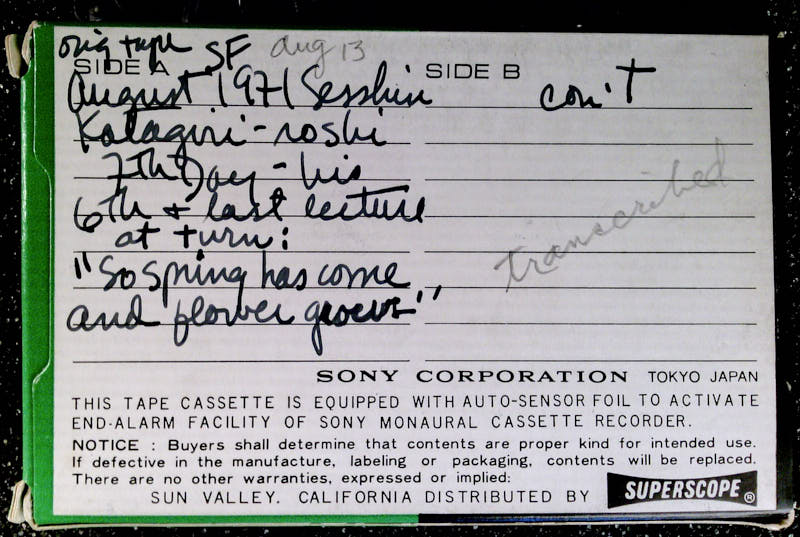 orig tape SF aug 13
SIDE A
August 1971 Sesshin
Katagiri-roshi
7th Day - his
6th & last lecture
at turn:
"So spring has come
and flower grows"
SIDE B
con't
transcribed
SONY CORPORATION TOKYO JAPAN
THIS TAPE CASSETTE IS EQUIPPED WITH AUTO-SENSOR FOIL TO ACTIVATE
END-ALARM FACILITY OF SONY MONAURAL CASSETTE RECORDER.
NOTICE : Buyers shall determine that contents are proper kind for intended use.
If defective in the manufacture, labeling or packaging, contents will be replaced.
There are no other warranties, expressed or implied:
SUN VALLEY. CALIFORNIA DISTRIBUTED BY SUPERSCOPE®